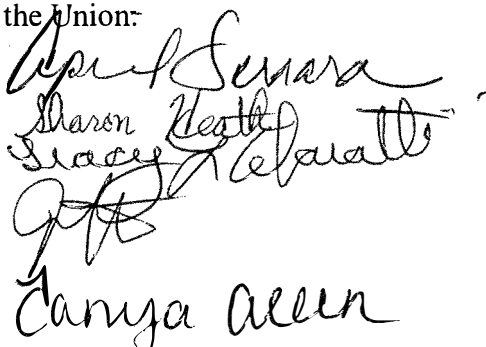 the Union:
April Serrara
Sharon Heath
Tracy
Tanya Allen